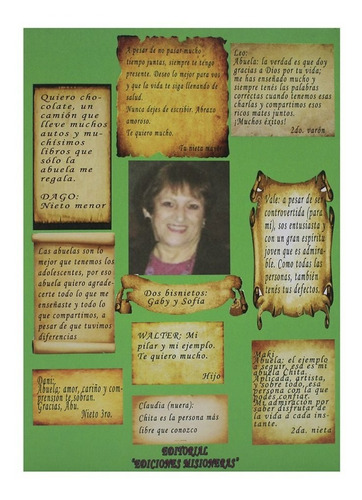 A pesar de no pasar mucho
tiempo juntas, siempre te tengo
presente. Deseo lo mejor para vos
y que la vida te siga llenando de
salud.
Nunca dejes de escribir. Abrazo
amoroso.
Te quiero mucho.
Tu nieta mayor
Leo:
Abuela: la verdad es que doy
gracias a Dios por tu vida;
me has enseñado mucho y
siempre tenés las palabras
correctas cuando tenemos esas
charlas y compartimos esos
ricos mates juntos.
¡Muchos éxitos!
2do. varón
Quiero cho-
colate, un
camión que
lleve muchos
autos y mu-
chísimos
libros que
sólo la
abuela me
regala.
DAGO:
Nieto menor
Vale: a pesar de ser
controvertida (para
mi), sos entusiasta y
con un gran espíritu
joven que es admira-
ble. Como todas las
personas, también
tenés tus defectos.
Las abuelas son lo
mejor que tenemos los
adolescentes, por eso
abuela quiero agrade-
certe todo lo que me
enseñaste y todo lo
que compartimos, a
pesar de que tuvimos
diferencias
Dos bisnietos:
Gaby y Sofía
WALTER: Mi
pilar y mi ejemplo.
Te quiero mucho.
Hijo
Maki
Abuela: el ejemplo
a seguir, esa es mi
abuela Chita.
Aplicada, artista,
y sobre todo, esa
persona con la que
podés confiar.
Mi admiración por
saber disfrutar de
la vida a cada ins-
tante.
2da. nieta
Dani:
Abuela: amor, cariño y com-
prensión te sobran.
Gracias, Abu.
Nieto 3ro.
Claudia (nuera):
Chita es la persona más
libre que conozco
EDITORIAL
"EDICIONES MISIONERAS"